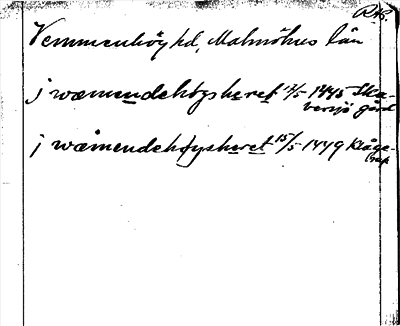 R. 45.
Vemmenhög hd, Malmöhus län
j wæmendehögsheret 4/5 1445 Ska-
bersjö gård
j wæmendehøysheret 15/5 1449 Klåge-
rup